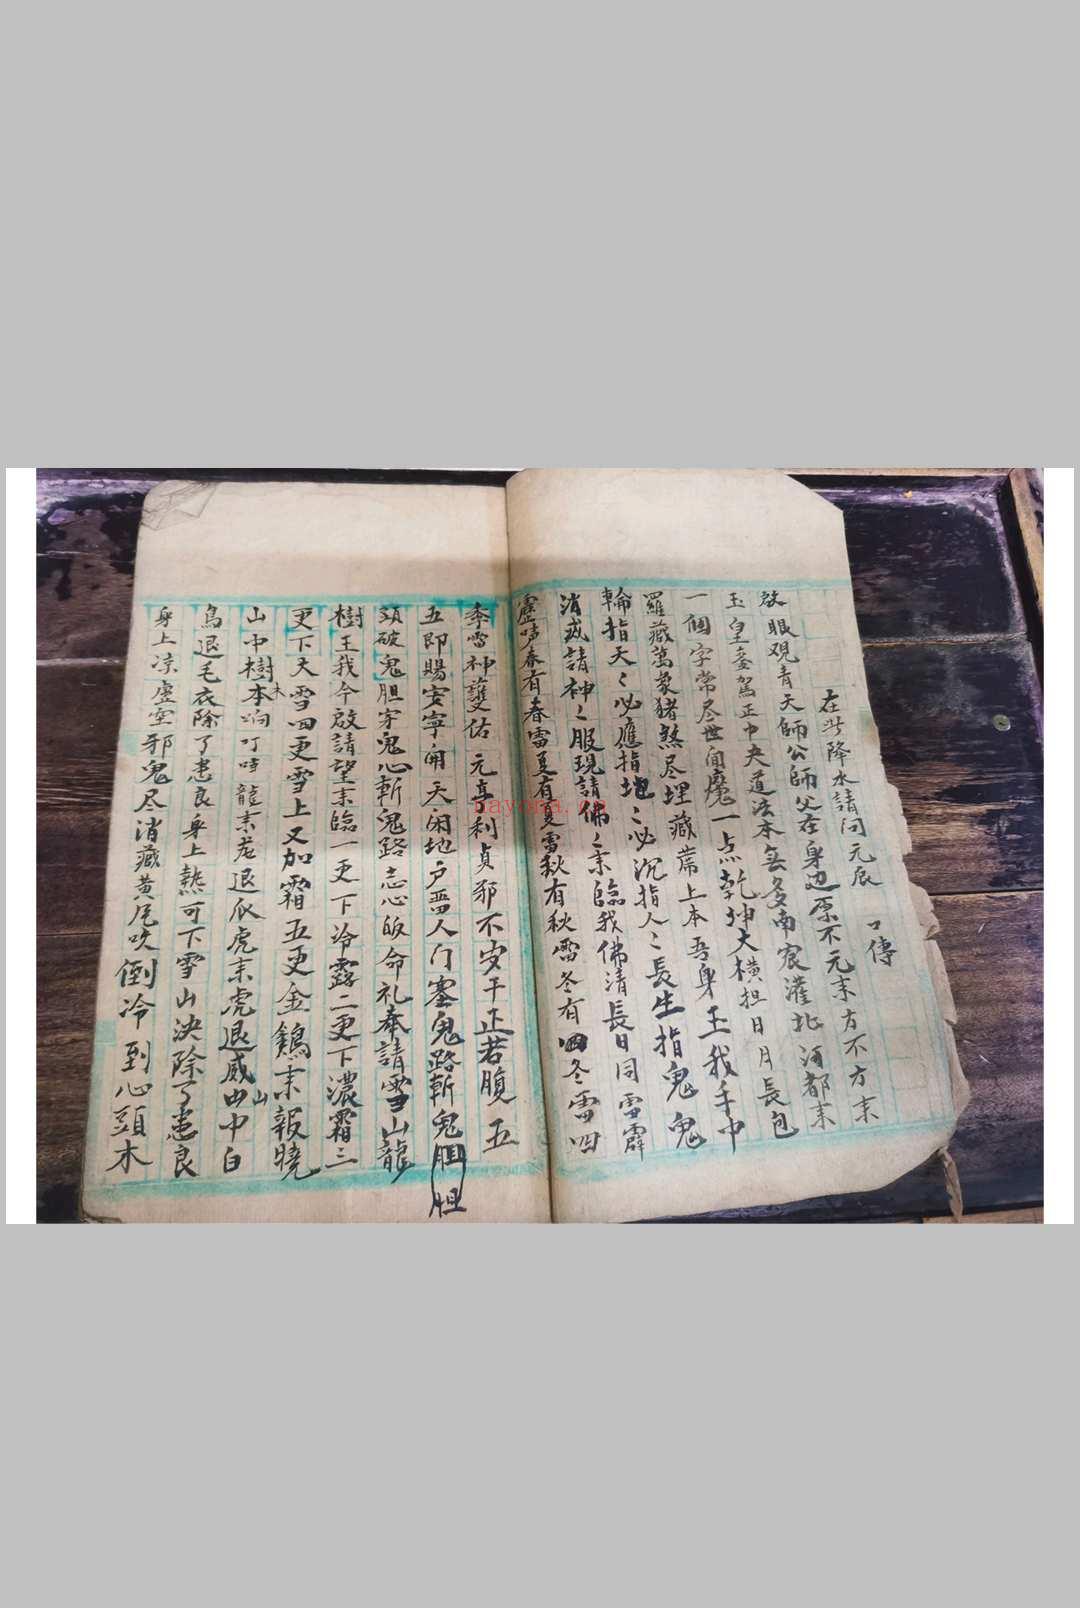 口傳
在此降水請问元辰
啟眼观青天師公師父在身边原不元来方不方来
玉皇金駕正中央道法本無多南宸灌北河都来
一個字常尽世间魔一点乾坤大横担日月長包
羅藏萬象猪煞尽埋藏蓆上本吾身玉我手中
輪指天〻必應指地〻必沉指人〻長生指鬼鬼
消滅請神〻服現請佛〻来臨我佛清長日同雪霹
靈声春有春雷夏有夏雷秋有秋雷冬有冬雷四
季雷神護佑元亨利貞邪不岁干正若腹五
五即賜安宁開天闲地户啚人门塞鬼路斬鬼胆
胆
頭破鬼胆穿鬼心斬鬼路志心皈命礼奉請雪山龍
樹王我今啟請望来臨一更下冷露二更下濃霜三
更下大雪四更雪上又加霜五更金鷄来報曉
山中樹木响叮噹龍来龙退爪虎来虎退威山中白
鳥退毛衣除了患良身上熱可下雪山決除了患良
身上凉虚空邪鬼尽消藏黄尼吹倒冷到心頭木
nayona.cn